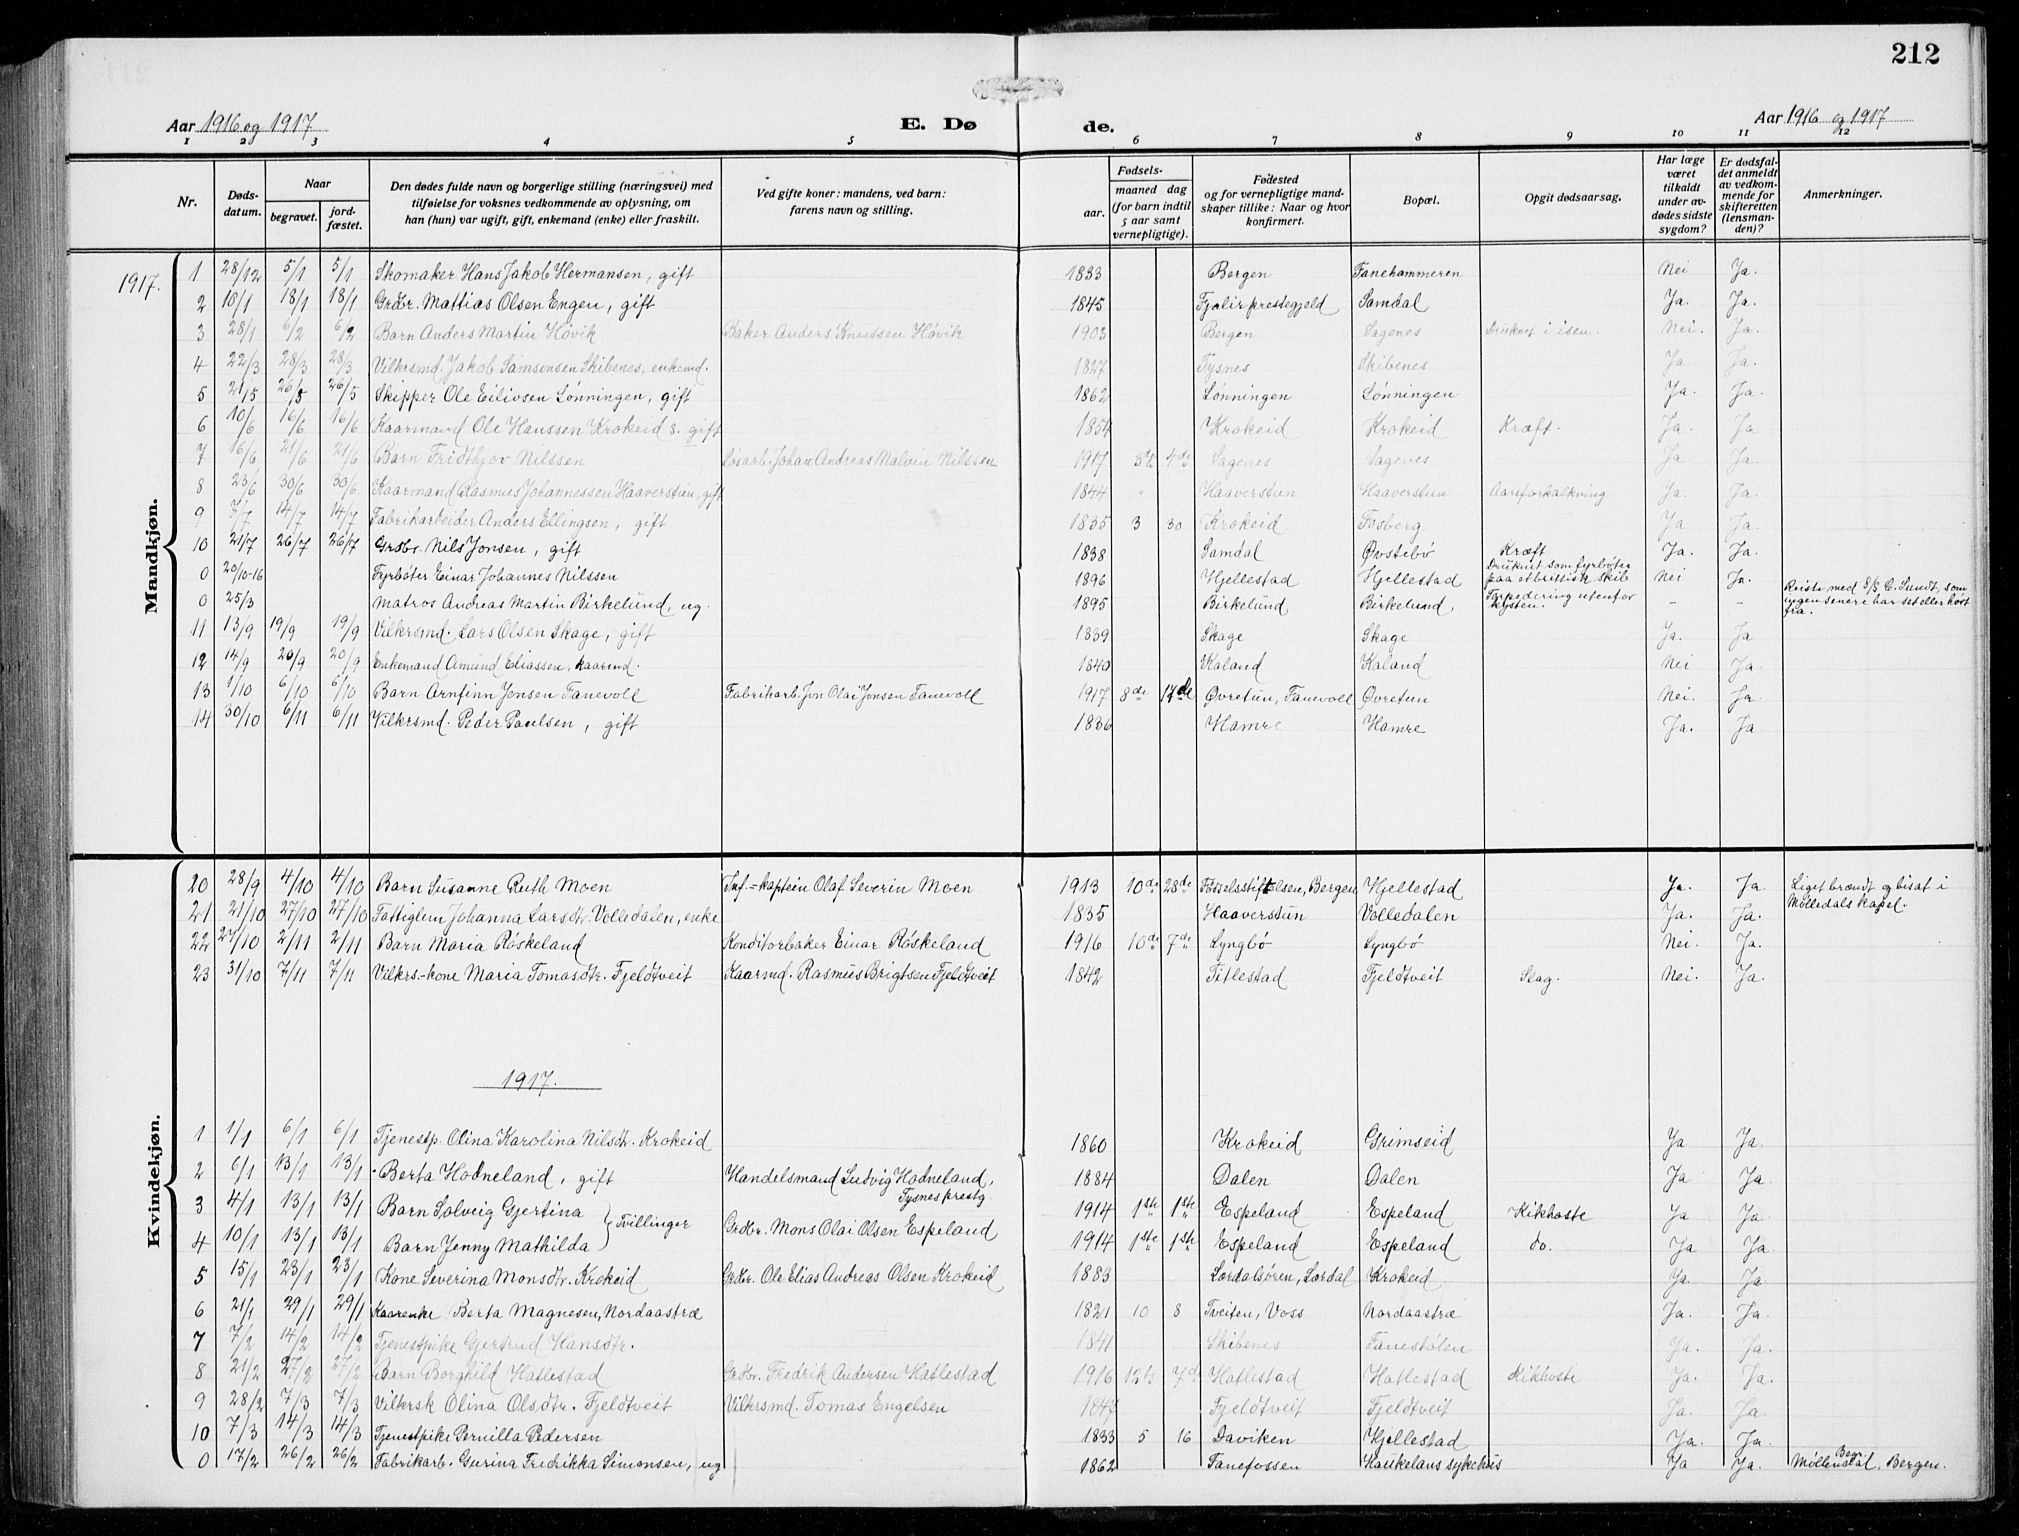 212
Aar 1916 og 1917 E. Dø de. Aar 1916 og 1917
1 2 3 4 5 6 7 8 9 10 11 12
Nr. Døds-datum. Naar begravet. jord-fæstet. Den dødes fulde navn og borgerlige stilling (næringsvei) med tilføielse for voksnes vedkommende av oplysning, om han (hun) var ugift, gift, enkemand (enke) eller fraskilt. Ved gifte koner: mandens, ved barn: farens navn og stilling. Fødsels- aar. maaned dag (for barn indtil 5 aar samt vernepligtige). Fødested og for vernepligtige mandskaper tillike: Naar og hvor konfirmert. Bopæl. Opgit dødsaarsag. Har læge været tilkaldt under avdødes sidste sygdom? Er dødsfaldet anmeldt av vedkommende for skifteretten (lensmanden)? Anmerkninger.
Mandkjøn.
1917. 1 28/12 5/1 5/1 Skomaker Hans Jakob Hermansen, gift 1833 Bergen Fanehammeren Nei Ja.
2 10/1 18/1 18/1 Grdbr. Mattias Olsen Engen, gift 1845 Fjalir prestegjeld Samdal Ja. Ja.
3 28/1 6/2 6/2 Barn Anders Martin Høvik Baker Anders Knutsen Høvik 1903 Bergen Sagenes Druknet i isen. Nei. Ja.
4 22/3 28/3 28/3 Vilkrsmd. Jakob Samsonsen Skibenes, enkemd. 1827 Tysnes Skibenes Ja Ja.
5 21/5 26/5 26/5 Skipper Ole Eilivsen Lønningen, gift 1862 Lønningen Lønningen Ja. Ja.
6 10/6 16/6 16/6 Kaarmand Ole Hanssen Krokeid s. gift 1854 Krokeid Krokeid Kræft. Ja. Ja
7 16/6 21/6 21/6 Barn Fridthjov Nilssen Løsarb. Johan Andreas Malvin Nilssen 1917 4de Sagenes Sagenes Ja Ja.
8 23/6 30/6 30/6 Kaarmand Rasmus Johannessen Haaverstun, gift 1844 Haaverstun Haaverstun Aareforkalkning Ja. Ja.
9 7/7 14/7 14/7 Fabrikarbeider Anders Ellingsen, gift 1835 3 30 Krokeid Fosberg Ja. Ja.
10 21/7 26/7 26/7 Grdbr. Nils Jonsen, gift 1838 Samdal Øvstebø Kræft Ja. Ja.
0 20/10-16 Fyrbøter Einar Johannes Nilssen 1896 Hjellestad Hjellestad Druknet som fyrbøter paa et britisk skib Nei Ja.
0 25/3 Matros Andreas Martin Birkelund, ug. 1895 Birkelund Birkelund, Torpedering utenfor kysten. – – Reiste med S/S C. Sundt, som ingen senere har set eller hørt fra.
11 13/9 19/9 19/9 Vilkrsmd. Lars Olsen Skage, gift 1839 Skage Skage Ja. Ja
12 14/9 20/9 20/9 Enkemand Amund Eliassen, kaarmd. 1840 Kaland Kaland Nei Ja.
13 1/10 6/10 6/10 Barn Arnfinn Jonsen Fanevoll Fabrikarb. Jon Olai Jonsen Fanevoll 1917 8de 17de Øvretun, Fanevoll Øvretun Nei. Ja.
14 30/10 6/11 6/11 Vilkrsmd. Peder Paulsen, gift 1836 Hamre Hamre Ja. Ja
Kvindekjøn.
20 28/9 4/10 4/10 Barn Susanne Ruth Moen Inf.-kaptein Olaf Severin Moen 1913 10de 28de Fødselsstiftelsen, Bergen Hjellestad Ja. Ja. Liget brændt og bisat i Mølledals kapel.
21 21/10 27/10 27/10 Fattiglem Johanna Larsdtr. Volledalen, enke 1835 Haaverstun Volledalen Ja. Ja.
22 27/10 2/11 2/11 Barn Maria Røskeland Konditorbaker Einar Røskeland 1916 10de 7de Lyngbø Lyngbø Nei. Ja.
23 31/10 7/11 7/11 Vilkrs.-kone Maria Tomasdtr. Fjeldtveit Kaarmd. Rasmus Brigtsen Fjeldtveit 1842 Titlestad Fjeldtveit Slag. Nei. Ja.
1917.
1 1/1 6/1 6/1 Tjenestp. Olina Karolina Nilsdtr. Krokeid 1860 Krokeid Grimseid Ja Ja.
2 6/1 13/1 13/1 Berta Hodneland, gift Handelsmand Ludvig Hodneland, Tysnes prestg 1884 Dalen Dalen Ja Ja.
3 4/1 13/1 13/1 Barn Solveig Gjertina 1914 1ste 1ste Espeland Espeland Kikhoste Ja Ja.
Tvillinger Grdbr. Mons Olai Olsen Espeland
4 10/1 13/1 13/1 Barn Jenny Mathilda 1914 1ste 1ste Espeland Espeland do. Ja Ja.
5 15/1 23/1 23/1 Kone Severina Monsdtr. Krokeid Grdbr. Ole Elias Andreas Olsen Krokeid 1883 Lærdalsøren, Lærdal Krokeid Ja. Ja.
6 21/1 29/1 29/1 Kaarenke Berta Magnesen, Nordaastræ 1821 10 8 Tveiten, Voss Nordaastræ Ja. Ja.
7 7/2 14/2 14/2 Tjenestpike Gjertrud Hansdtr. 1841 Skibenes Fanestølen Ja. Ja.
8 21/2 27/2 27/2 Barn Borghild Hatlestad Grdbr. Fredrik Andersen Hatlestad 1916 Hatlestad Hatlestad Kikhoste Ja. Ja.
9 28/2 7/3 7/3 Vilkrsk Olina Olsdtr. Fjeldtveit Vilkrsmd. Tomas Engelsen 1847 Fjeldtveit Fjeldtveit Ja. Ja.
10 7/3 14/3 14/3 Tjenestpike Pernilla Pedersen 1833 5 16 Daviken Hjellestad Ja. Ja.
0 17/2 26/2 26/2 Fabrikarb. Gurina Fredrikka Simonsen, ug 1862 Fanefossen Haukelans sykehus Ja Ja. Begr. Møllendal, Bergen.